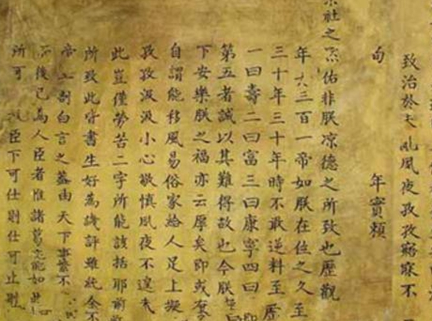 致治於夙夜孜孜寤寐不
旬 年實賴
宗社之默佑非朕涼德之所致也歷觀
年六三百一帝如朕在位之久至
三十年三十年時不敢逆料至
一曰壽二曰富三曰康寧四曰
第五者誠以其難得故也今朕
下安樂朕之福亦云厚矣即或有
自謂能移風易俗家給人足上擬
孜孜汲汲小心敬慎夙夜不遑
此豈僅勞苦二字所能該括耶前
所致此皆書生好為譏評雖純全
帝王剖白言之蓋由天下事繁不
後已為人臣者惟諸葛亮能如此
所可 臣下可仕則仕可止則